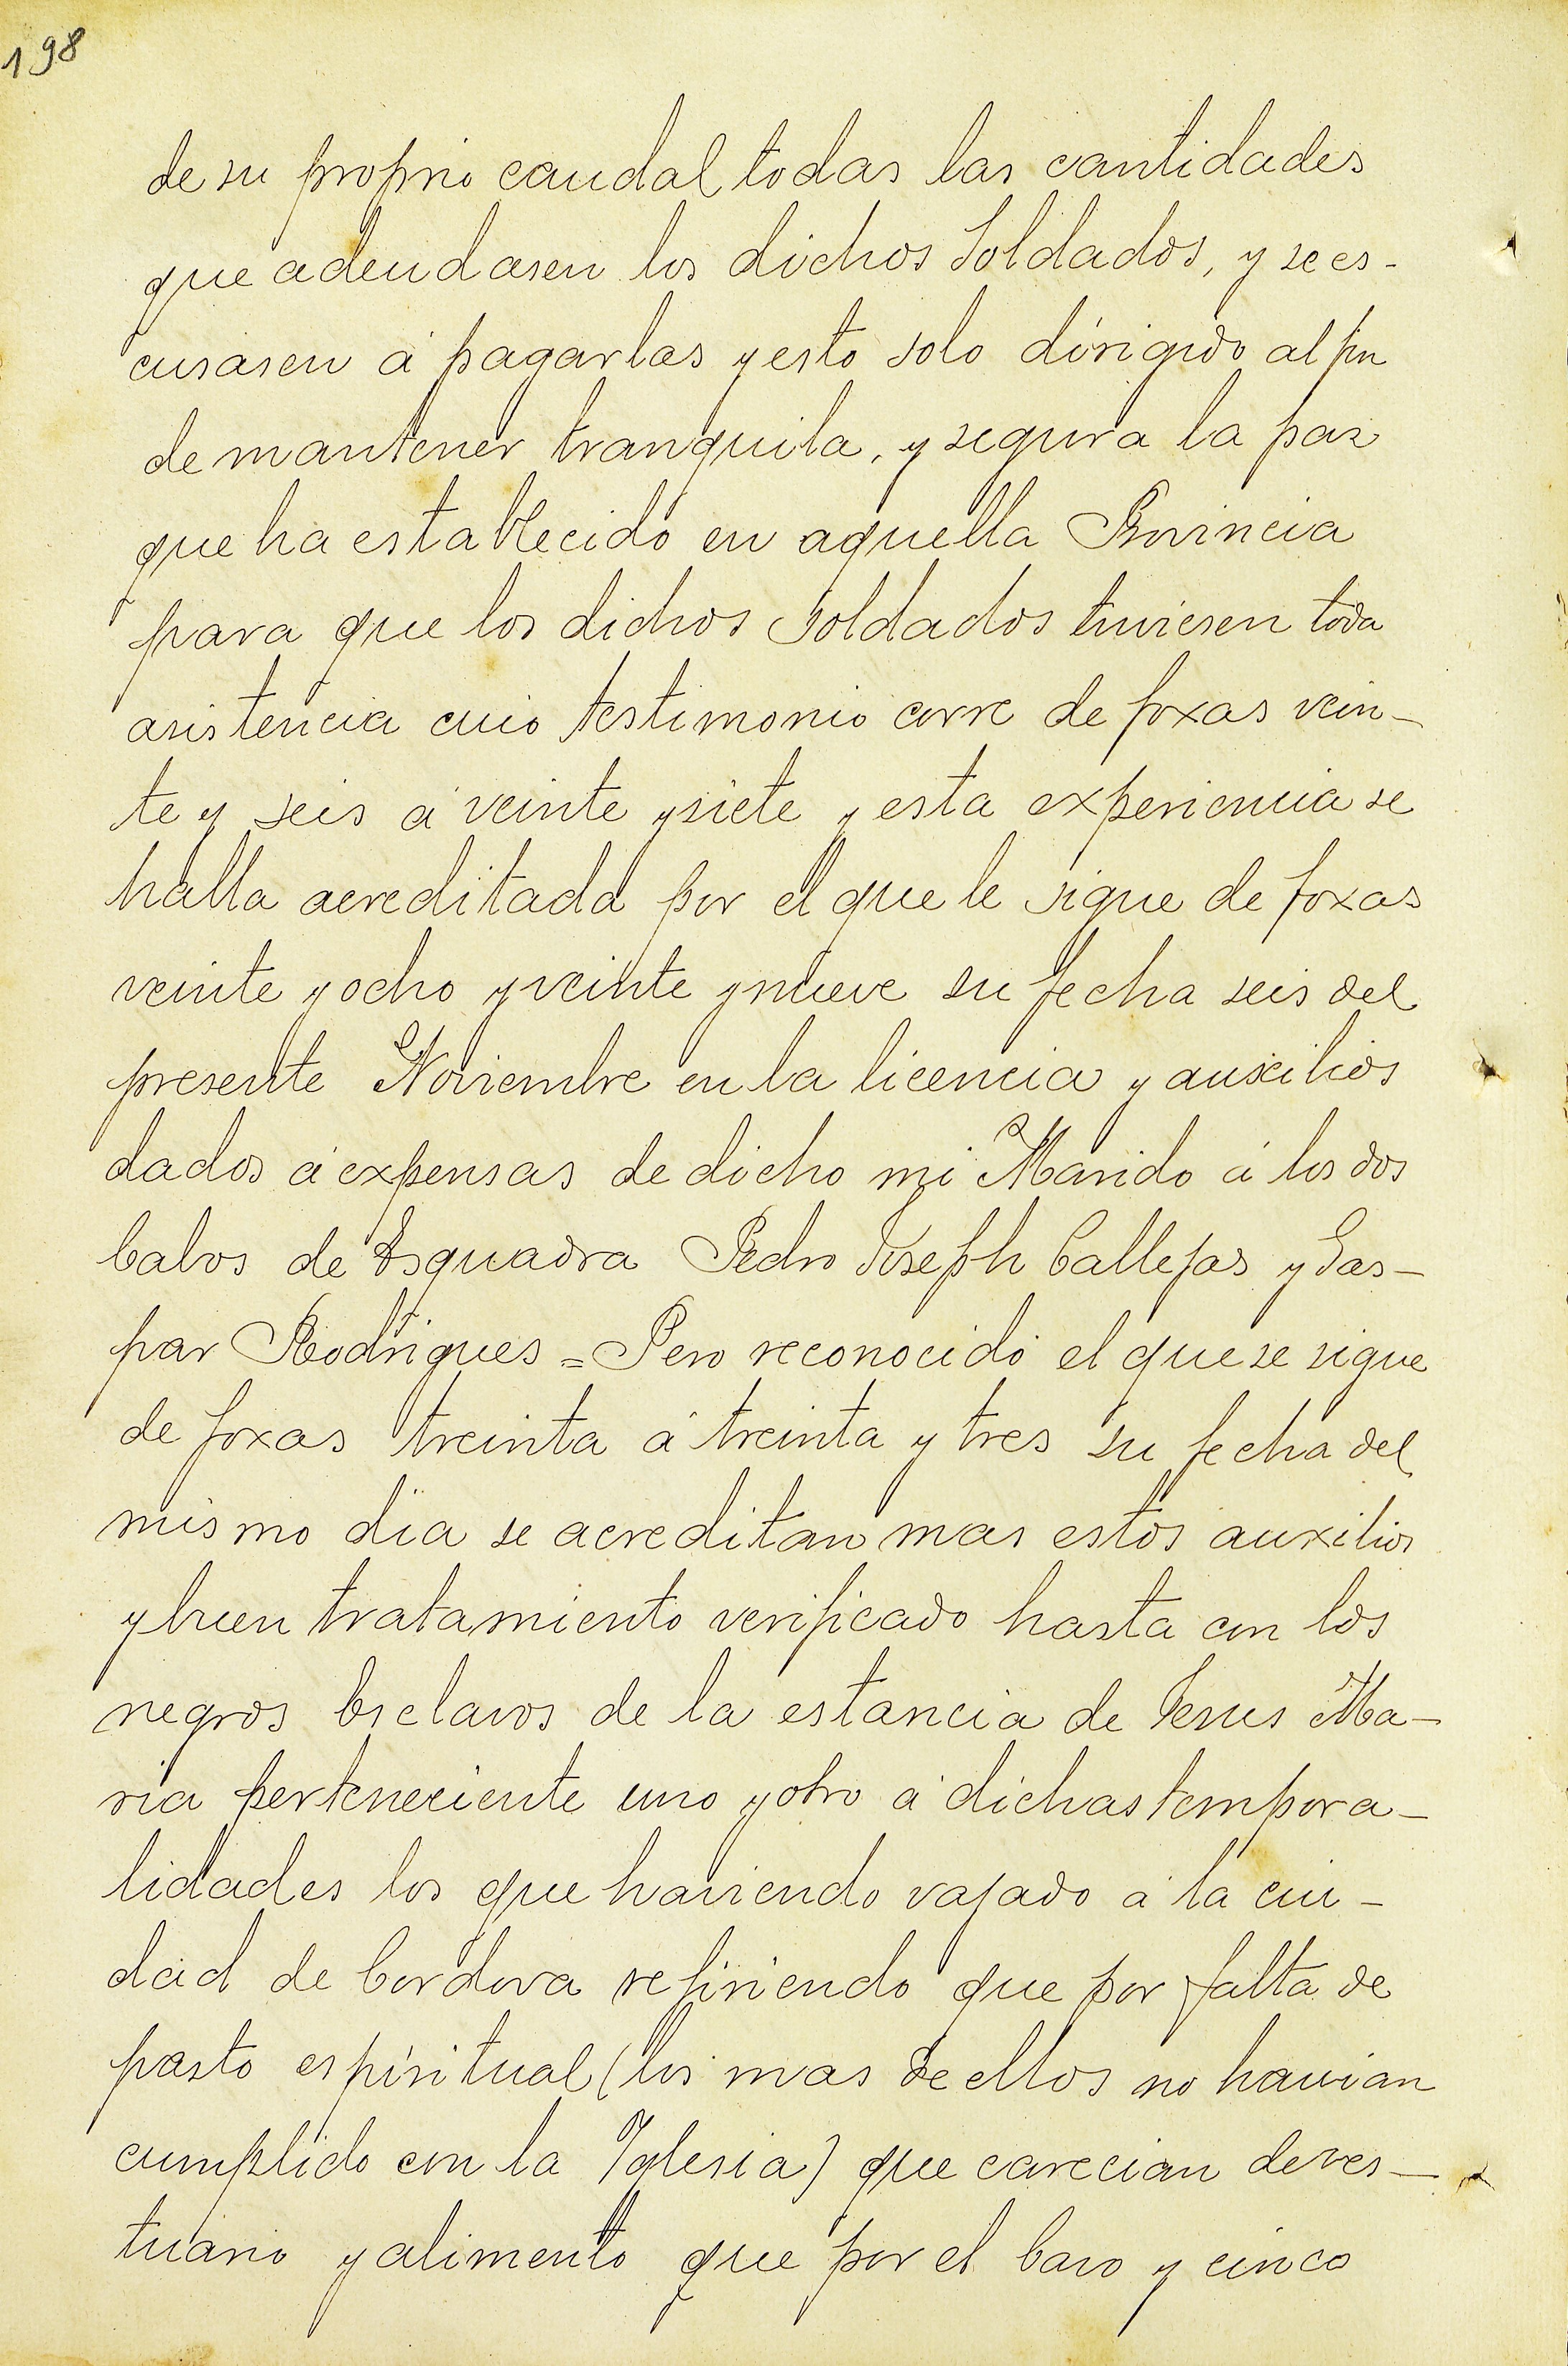 198
de su proprio caudal todas las cantidades
que adeudasen los dichos Soldados, y se es-
cusasen á pagarlas y esto solo dirigido al fin
de mantener tranquila, y segura la paz
que ha establecido en aquella Provincia
para que los dichos Soldados tuviesen toda
asistencia cuio testimonio corre de foxas vein-
te y seis á veinte y siete y esta experiencia se
halla acreditada por el que le sigue de foxas
veinte y ocho y veinte y nueve su fecha seis del
presente Noviembre en la licencia y auxilios
dados á expensas de dicho mi Marido á los dos
Cabos de Esquadra Pedro Joseph Callejas y Gas-
par Rodrigues = Pero reconocido el que se sigue
de foxas treinta á treinta y tres su fecha del
mismo dia se acreditan mas estos auxilios
y buen tratamiento verificado hasta con los
negros Esclavos de la estancia de Jesus Ma-
ria perteneciente uno y otro á dichas tempora-
lidades los que haviendo vajado á la ciu-
dad de Cordova refiriendo que por falta de
pasto espiritual (los mas de ellos no havian
cumplido con la Yglesia) que carecian de ves-
tuario y alimento que por el Cavo y cinco